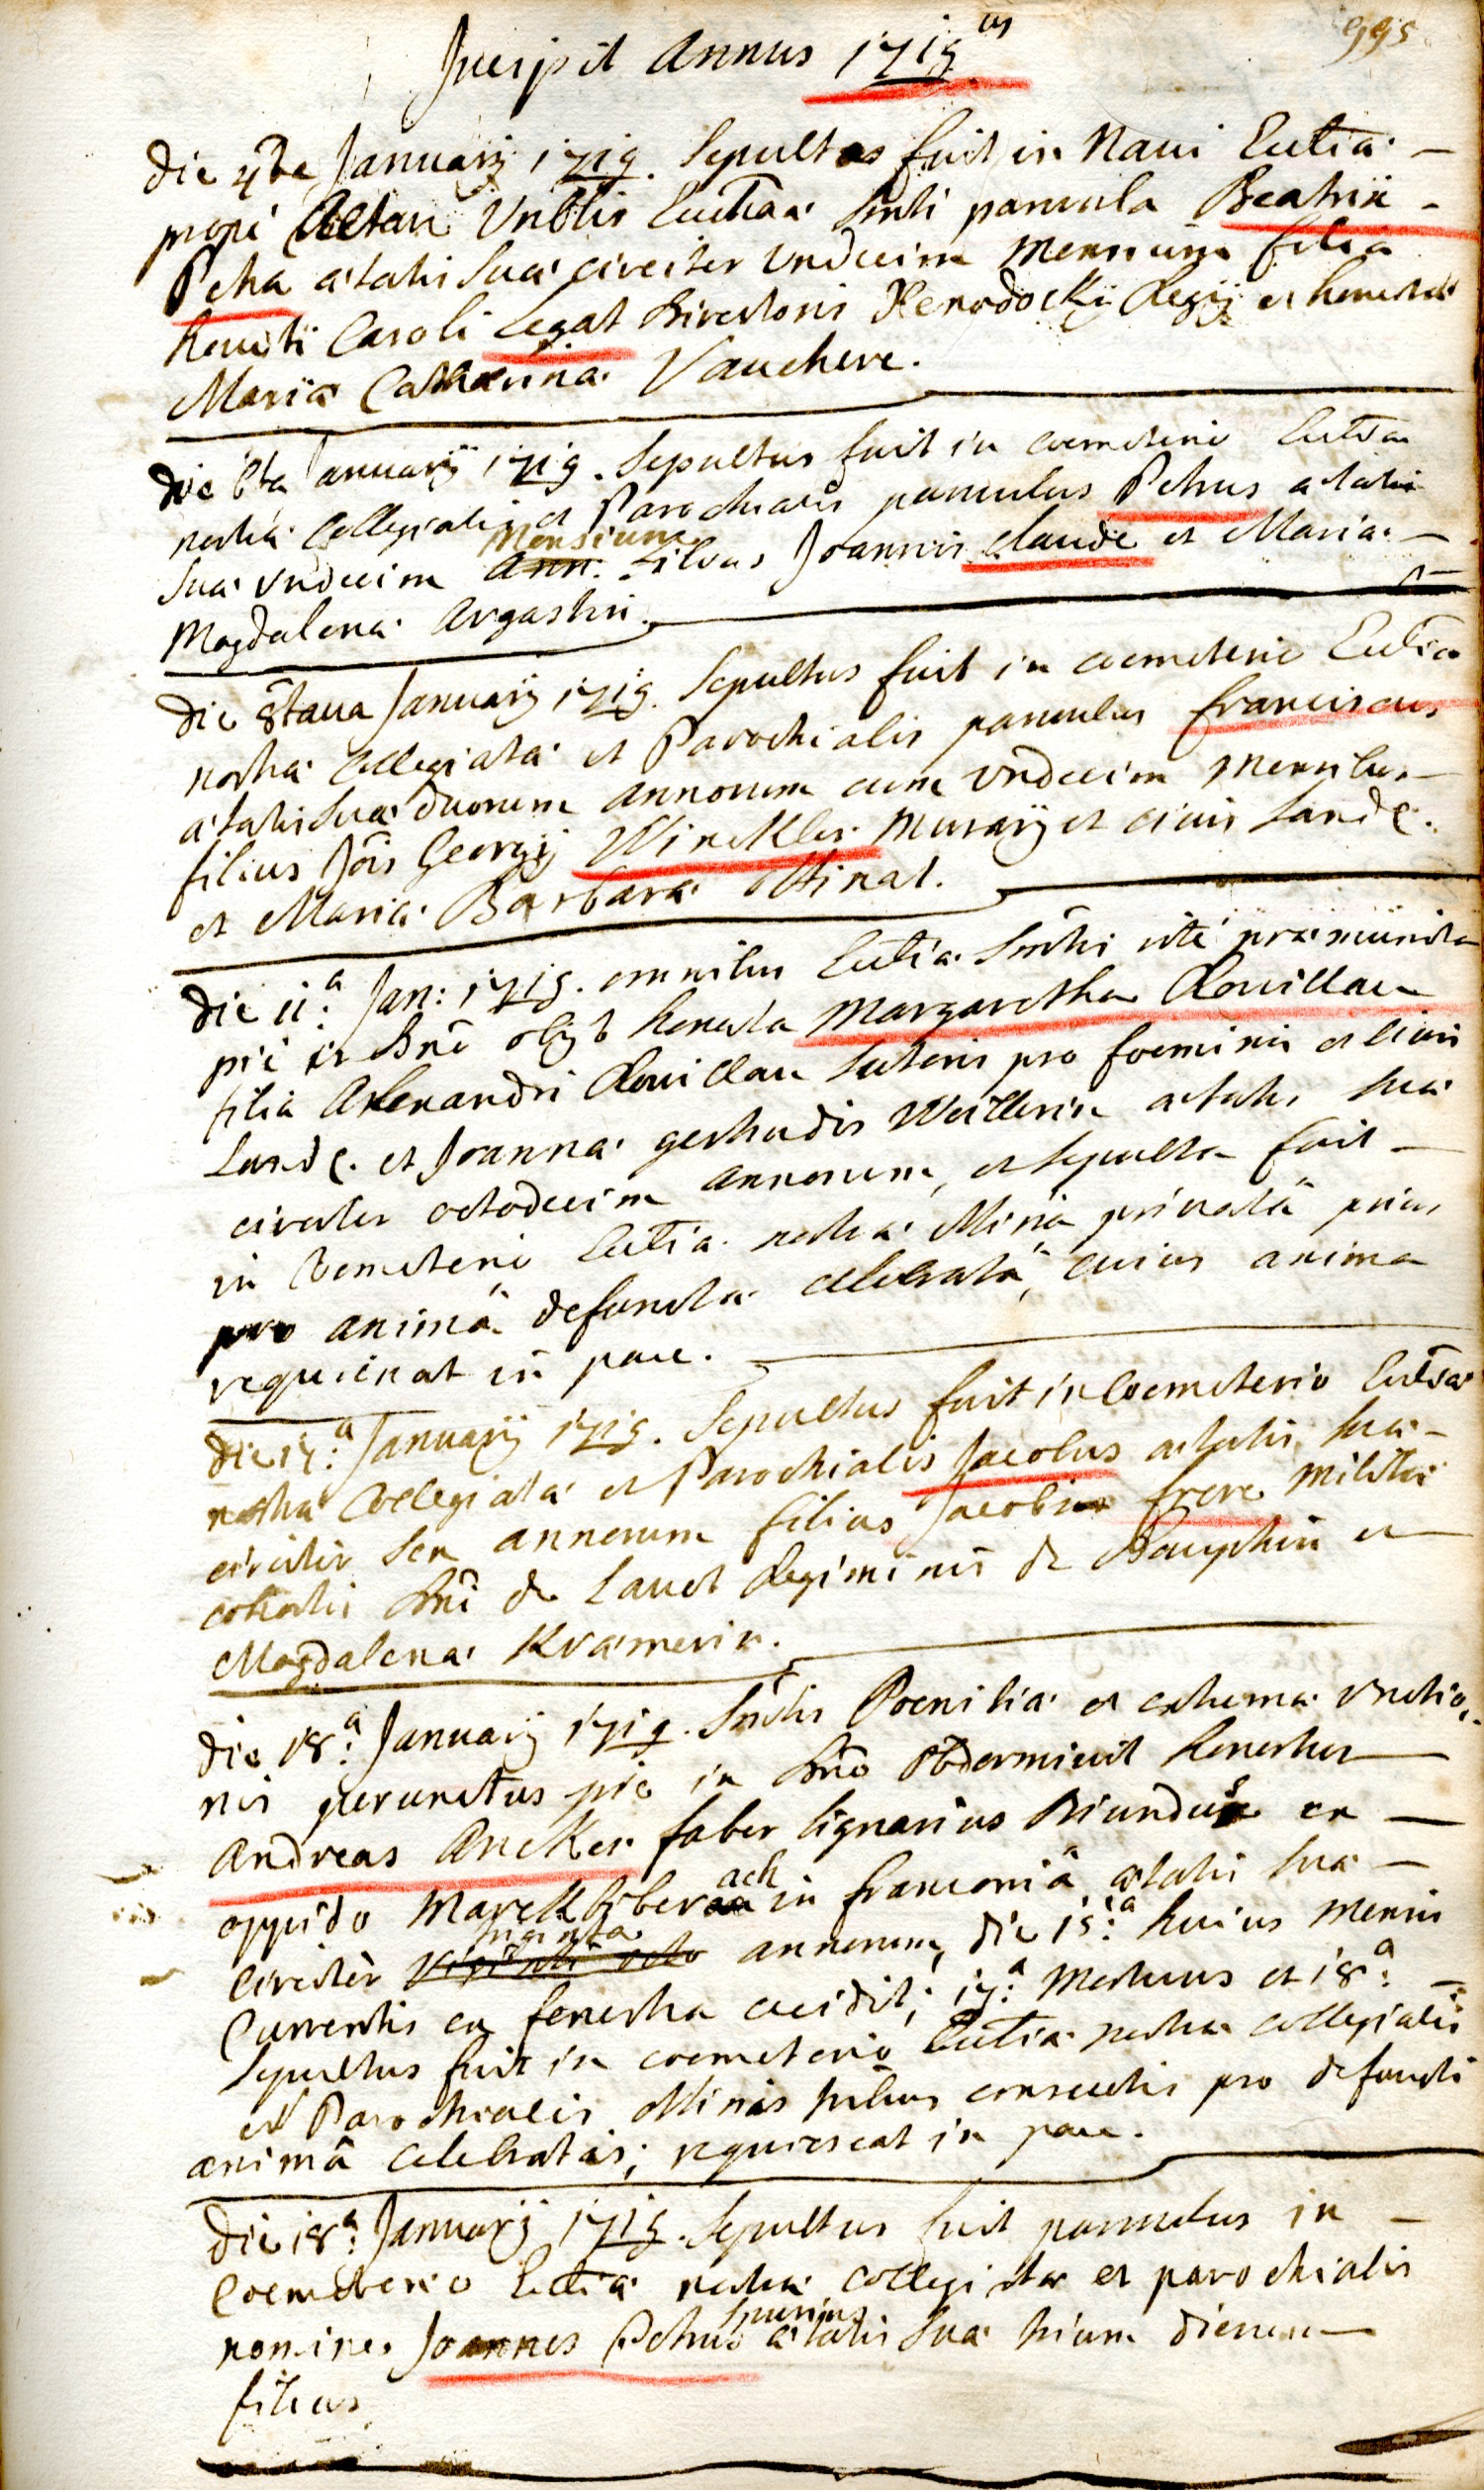 995
Incipit Annus 1719us
die 4ta Januarij 1719. Sepultas fuit in Naui Eccłia
prope Altare Vnbłis Eucħae Snti paruula Beatrix
Petra ætatis Suæ circiter Vndecim Mensium filia
honesti Caroli Legat Directoris Xenodochij Regij et honestæ
Mariæ Catharinæ Vauchere.
die 6ta Januarij 1719. Sepultus fuit in coemeterio Eccłiæ
nostræ Collegialis et Parochialis paruulus Petrus ætatis
Mensium
suæ vndecim Ann: filius Joannis Claude et Mariæ
Magdalenæ Argastin.
die 8taua Januarij 1719. Sepultus fuit in coemeterio Eccłiæ
nostræ Collegiatæ et Parochialis paruulus franciscus
ætatis suæ duorum annorum cum vndecim Mensibus
filius Jõis Georgij Winckler Murarij et ciuis Lande.
et Mariæ Barbaræ Ottinat.
die 11.a Jan: 1719. omnibus Eccłiæ Sm̃tis ritè præmunita
piè in Dnõ obijt honesta Margaretha Rouillau
filia Alexandri Rouillau Sutoris pro foeminis et ciuis
Lande. et Joannæ gertrudis Weillerin ætatis suæ
circiter octodecim annorum, et sepulta fuit
in Coemeterio Eccłiæ nostræ Missâ priuatâ prius
pro animâ defunctæ celebratâ, cuius anima
requiescat in pace.
die 17.a Januarij 1719. Sepultus fuit in Coemeterio Eccłiæ
nostræ Collegiatæ et Parochialis Jacobus ætatis suæ
circiter sex annorum filius Jacobi frere militis
cohortis Dnĩ de Lauet Regiminis de Dauphin et
Magdalenæ Kramerin.
die 18.a Januarij 1719. Sm̃tis Poenitiæ et extremæ vnctio-
nis perunctus piè in Dnõ obdormiuit honestus
Andreas Ancker faber lignarius oriundus ex
ach
oppido Marckbiber in franconiâ ætatis suæ
triginta
circiter viginti octo annorum, die 15.a huius mensis
Currentis ex fenestra cecidit; 17.a Mortuus et 18.a
Sepultus fuit in coemeterio Eccłiæ nostræ collegialis
et Parochialis Missis tribus consuetis pro defuncti
animâ celebratis; requiescat in pace.
die 18.a Januarij 1719. Sepultus fuit paruulus in
Coemeterio Eccłiæ nostræ collegiatæ et parochialis
Spurius
nomine Joannes Petrus ætatis suæ trium dierum
filius